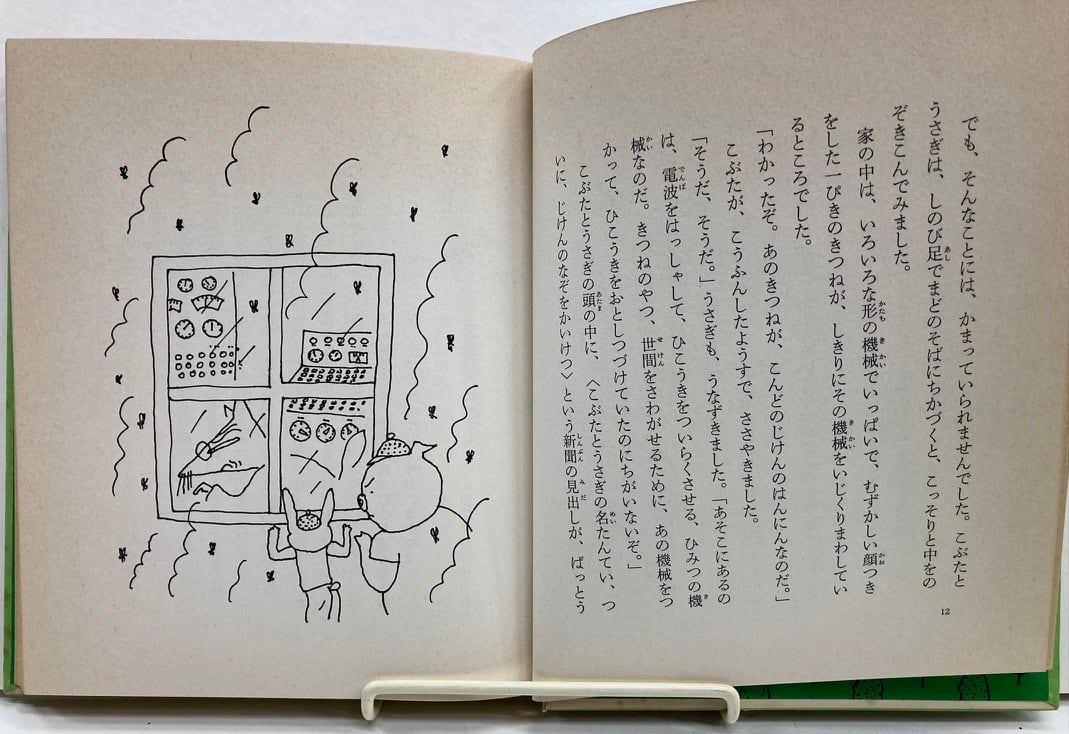 でも、そんなことには、かまっていられませんでした。こぶたと
うさぎは、しのび足でまどのそばにちかづくと、こっそりと中をの
ぞきこんでみました。
家の中は、いろいろな形の機械でいっぱいで、むずかしい顔つき
をした一ぴきのきつねが、しきりにその機械をいじくりまわしてい
るところでした。
「わかったぞ。あのきつねが、こんどのじけんのはんにんなのだ。」
こぶたが、こうふんしたようすで、ささやきました。
「そうだ、そうだ。」うさぎも、うなずきました。「あそこにあるの
は、電波をはっしゃして、ひこうきをついらくさせる、ひみつの機
械なのだ。きつねのやつ、世間をさわがせるために、あの機械をつ
かって、ひこうきをおとしつづけていたのにちがいないぞ。」
こぶたとうさぎの頭の中に、〈こぶたとうさぎの名たんてい、つ
いに、じけんのなぞをかいけつ〉という新聞の見出しが、ぱっとう
12